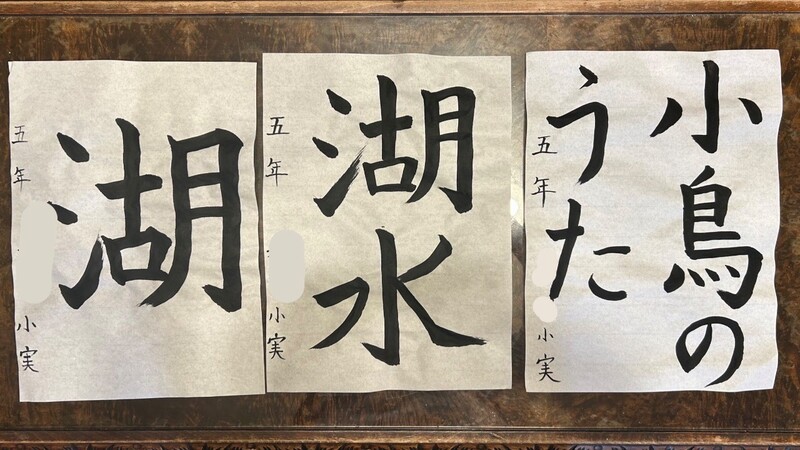 湖
五年
小実
湖水
五年
小実
小鳥の
うた
五年
小実